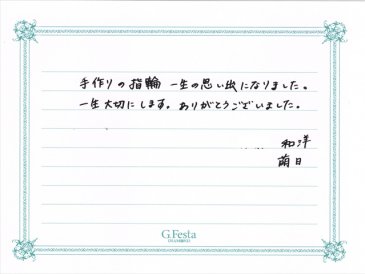 手作りの指輪 一生の思い出になりました。
一生大切にします。ありがとうございました。
和洋
萌日
G.Festa